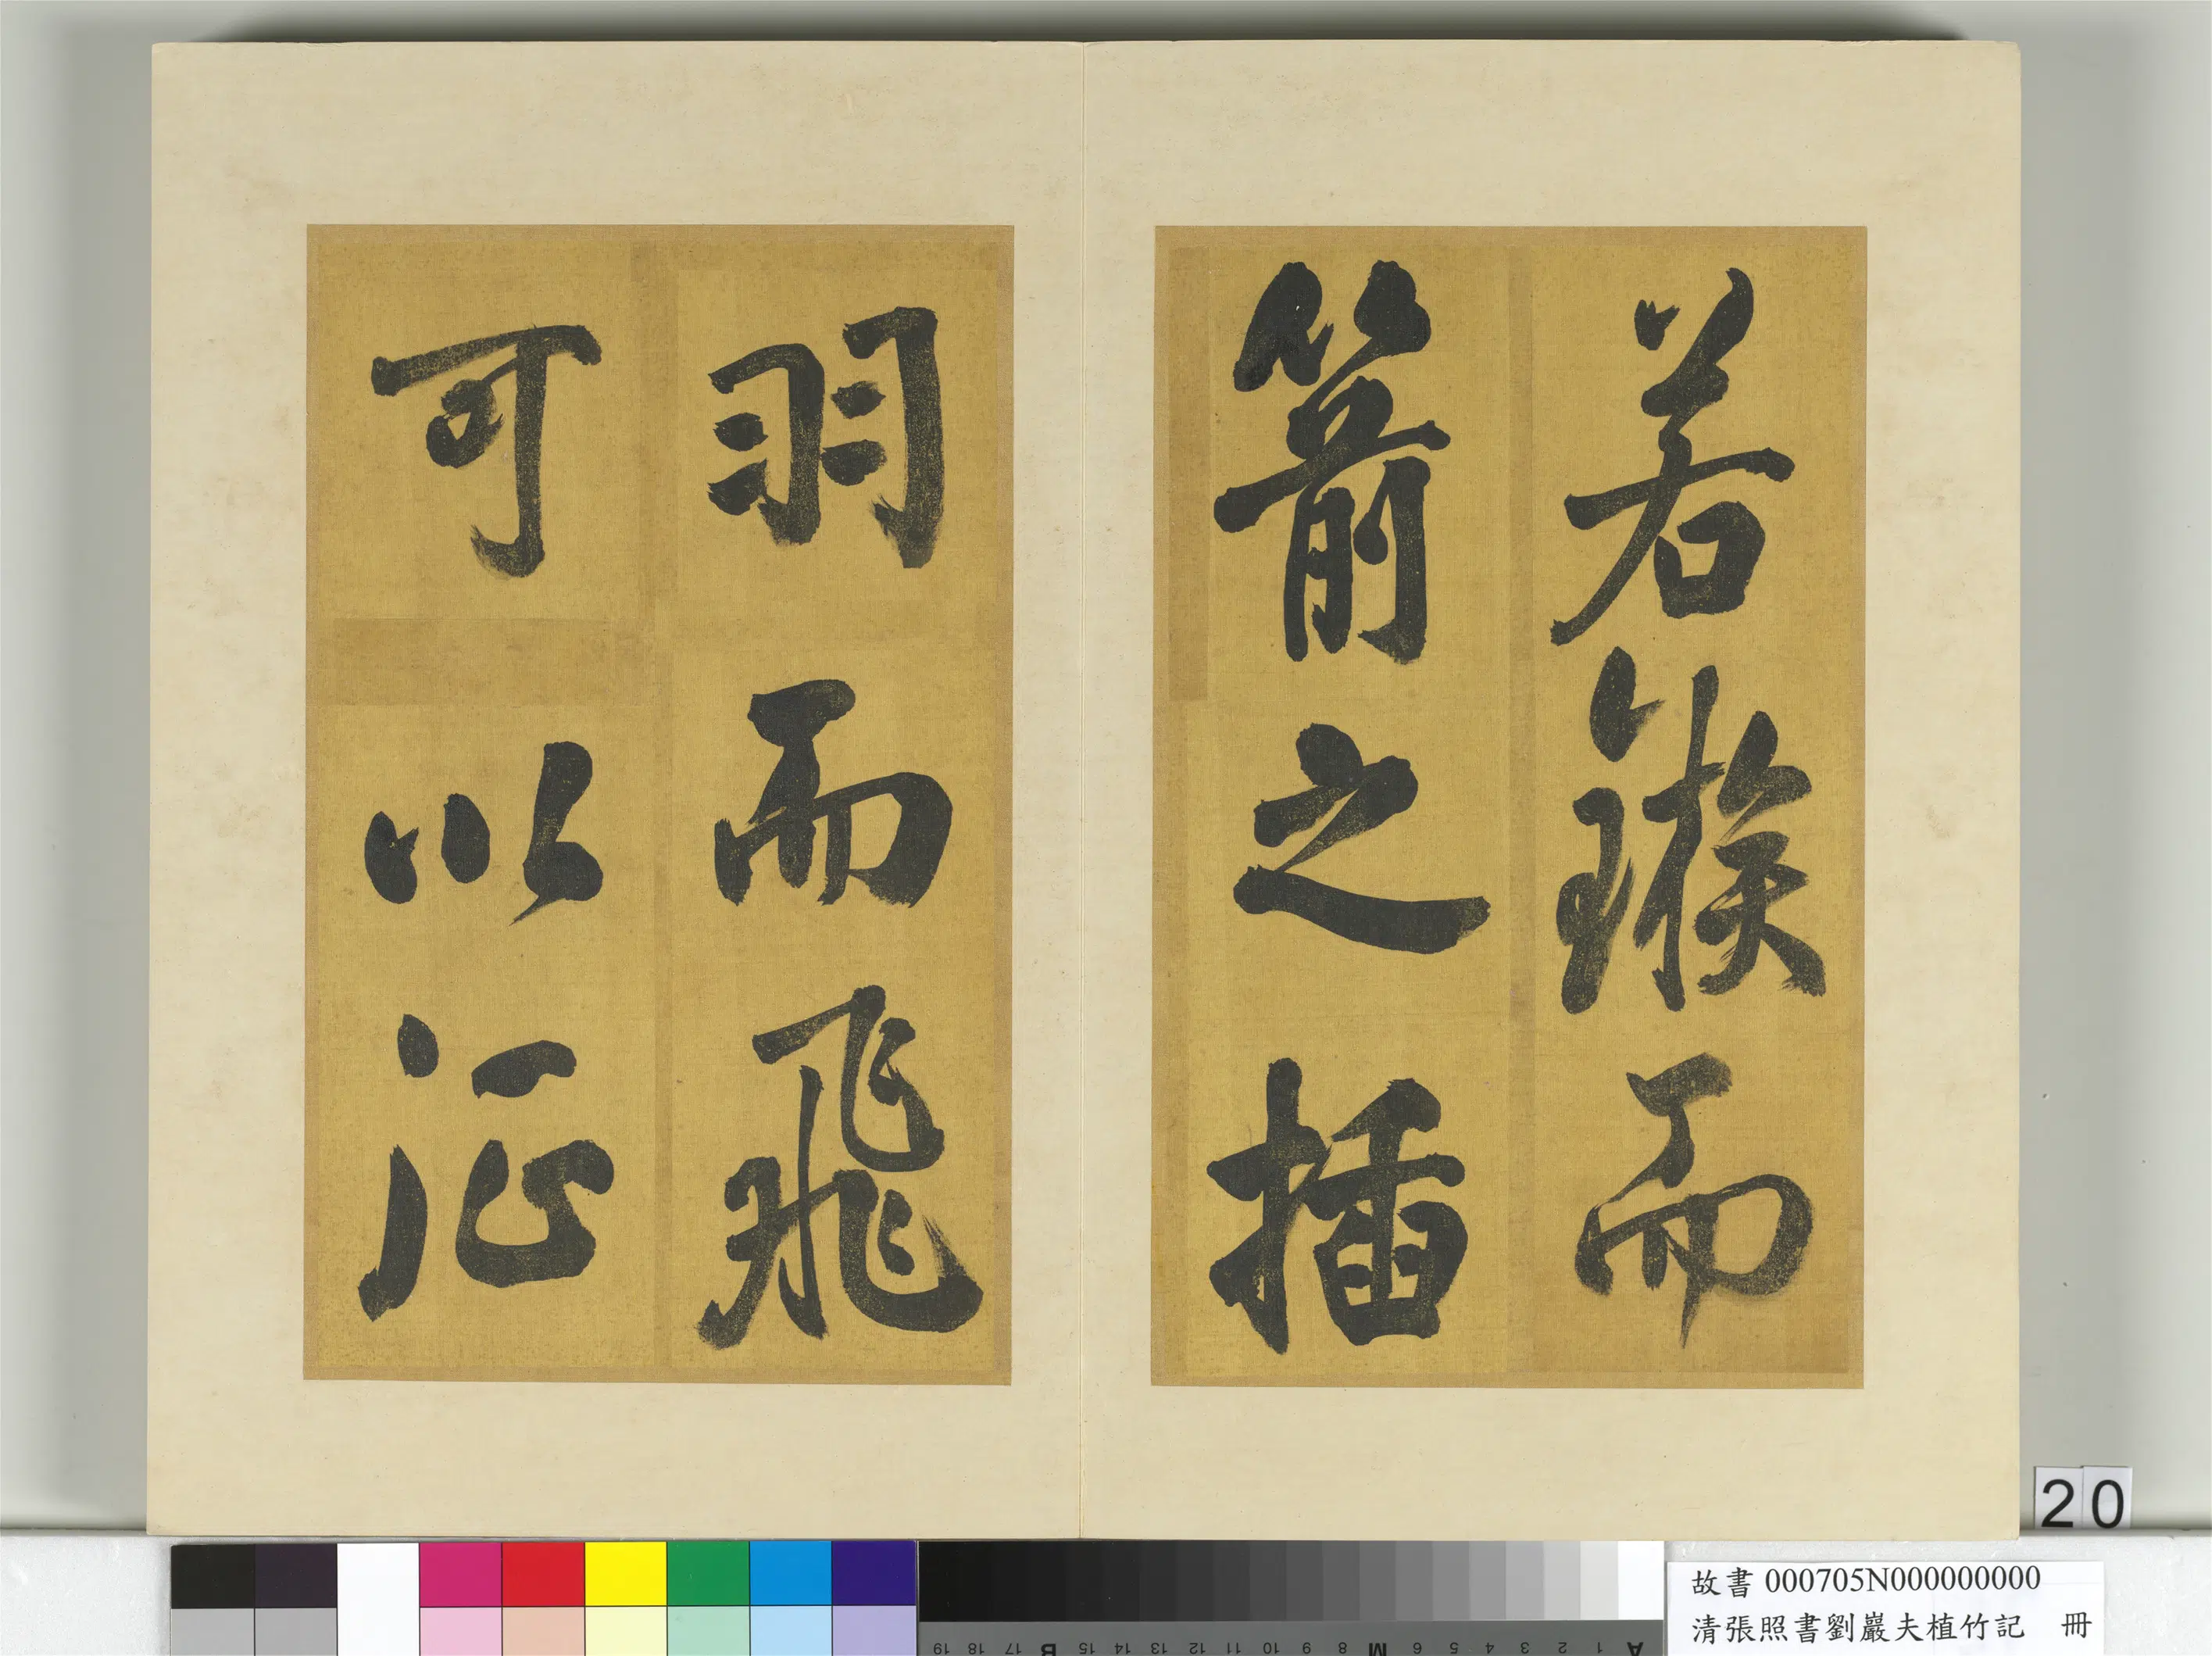 若鏃而
箭之插
羽而飛
可以征
20
故書 000705N000000000
清張照書劉巖夫植竹記 冊
A 1 2 3 4 5 6 M 8 9 10 11 12 13 14 15 B 17 18 19